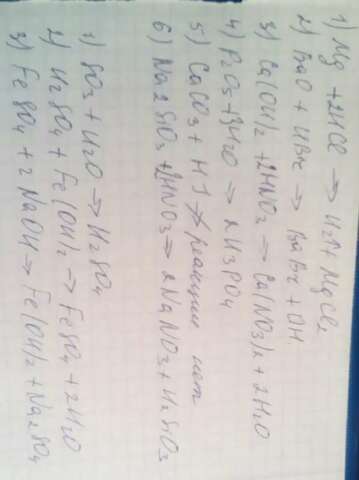 1) Mg + 2HCl → H2↑ + MgCl2
2) BaO + HBr → BaBr + OH
3) Ca(OH)2 + 2HNO3 → Ca(NO3)2 + 2H2O
4) P2O5 + 3H2O → 2H3PO4
5) CaCO3 + HI ↛ реакции нет
6) Na2SiO3 + 2HNO3 → 2NaNO3 + H2SiO3
1) SO3 + H2O → H2SO4
2) H2SO4 + Fe(OH)2 → FeSO4 + 2H2O
3) FeSO4 + 2NaOH → Fe(OH)2 + Na2SO4